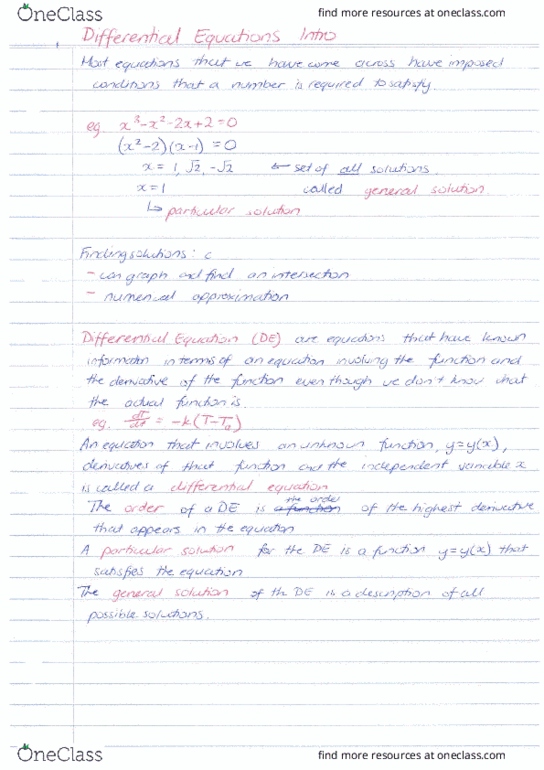 OneClass
find more resources at oneclass.com
Differential Equations Intro
Most equations that we have come across have imposed
conditions that a number is required to satisfy.
eg. x³-x²-2x+2=0
(x²-2)(x-1)=0
x = 1, √2, -√2 ← set of all solutions
x=1 called general solution.
↳ particular solution
Finding solutions: c
- can graph and find an intersection
- numerical approximation
Differential Equation (DE) are equations that have known
information in terms of an equation involving the function and
the derivative of the function even though we don't know what
the actual function is.
eg. dT/dt = -k(T-Ta)
An equation that involves an unknown function, y=y(x),
derivatives of that function and the independent variable x
is called a differential equation
the order
The order of a DE is a function of the highest derivative
that appears in the equation
A particular solution for the DE is a function y=y(x) that
satisfies the equation
The general solution of th DE is a description of all
possible solutions.
OneClass
find more resources at oneclass.com